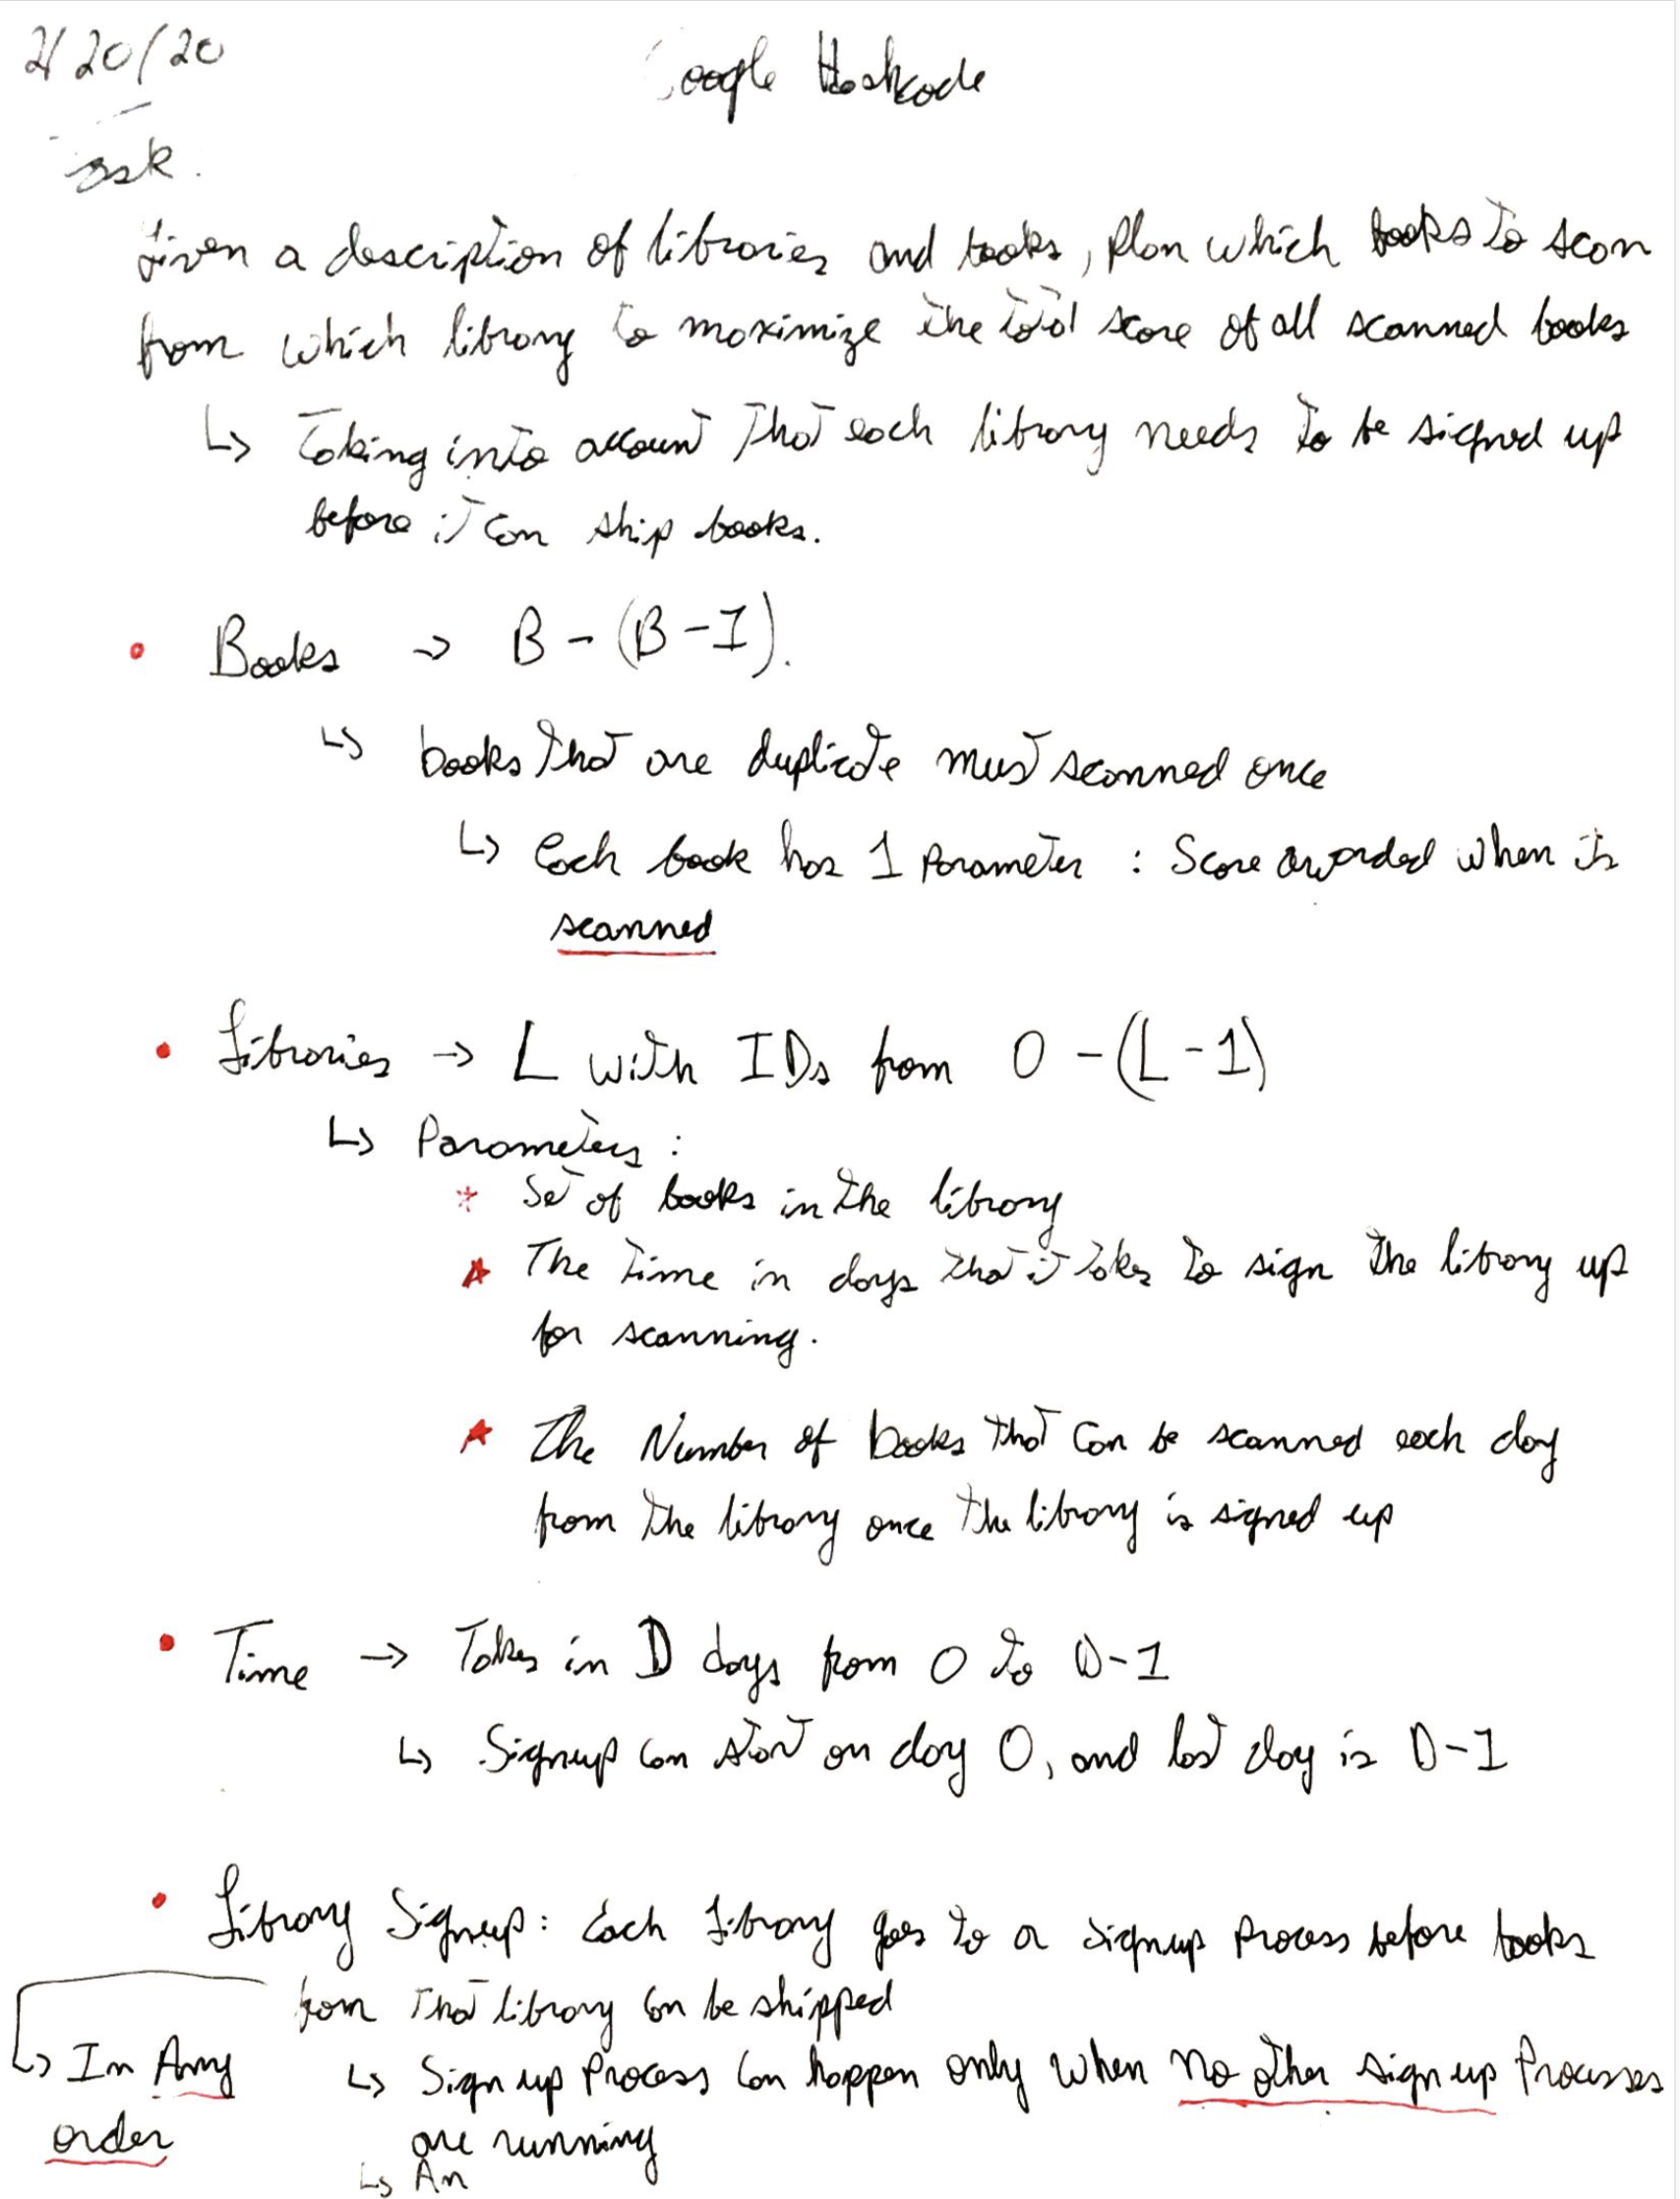 2/20/20
Google Hashcode
Task.
Given a desciption of libraries and books, plan which books to scan
from which library to maximize the total score of all scanned books
↳ Taking into account that each library needs to be signed up
before it can ship books.
• Books → B - (B-1).
↳ books that are duplicate must scanned once
↳ Each book has 1 parameter : Score awarded when its
scanned
• Libraries → L with IDs from 0 - (L-1)
↳ Parameters :
* Set of books in the library
* The time in days that it takes to sign the library up
for scanning.
* The Number of books that can be scanned each day
from the library once the library is signed up
• Time → Takes in D days from 0 to D-1
↳ Signup can start on day 0, and last day is D-1
• Library Signup: Each library goes to a signup process before books
from that library can be shipped
↳ In Any
order
↳ Sign up process can happen only when no other sign up processes
are running
↳ An